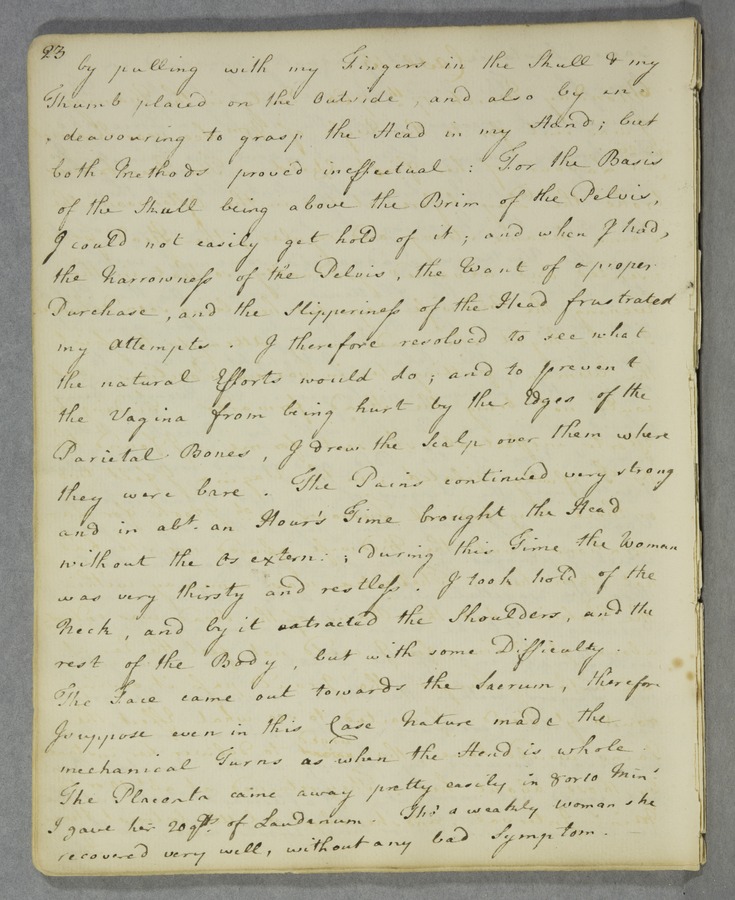 23
by pulling with my Fingers in the Skull & my
Thumb placed on the Outside, and also by en-
-deavouring to grasp the Head in my Hand; but
both Methods proved ineffectual: For the Basis
of the Skull being above the Brim of the Pelvis,
I could not easily get hold of it; and when I had,
the Narrowness of the Pelvis, the Want of a proper
Purchase, and the Slipperiness of the Head frustrated
my Attempts. I therefore resolved to see what
the natural Efforts would do; and to prevent
the Vagina from being hurt by the Edges of the
Parietal Bones, I drew the Scalp over them where
they were bare. The Pains continued very strong
and in abt. an Hour's Time brought the Head
without the Os extern:; during this Time the Woman
was very thirsty and restless. I took hold of the
Neck, and by it extracted the Shoulders, and the
rest of the Body, but with some Difficulty.
The Face came out towards the Sacrum, therefore
I suppose even in this Case Nature made the
mechanical Turns as when the Head is whole.
The Placenta came away pretty easily in 8 or 10 Min's
I gave her 20 gtts. of Laudanum. Tho' a weakly woman she
recovered very well, without any bad Symptom.